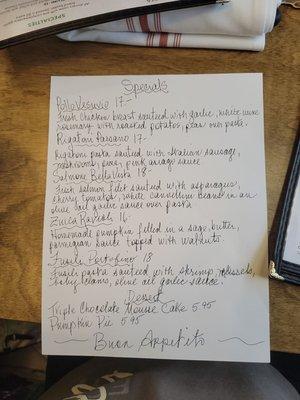 SPECIALTIES
Specials
Pollo Vesuvio 17-
Fresh chicken breast sautéed with garlic, white wine
rosemary with roasted potatoes, peas over pasta.
Rigatoni Paesano 17-
Rigatoni pasta sautéed with Italian sausage,
mushrooms, peas, pink asiago sauce
Salmon Bella Vista 18-
Fresh salmon filet sautéed with asparagus,
cherry tomatoes, white cannellini beans in an
olive oil garlic sauce over pasta
Zucca Ravioli 16-
Homemade pumpkin filled in a sage, butter,
parmesan sauce topped with walnuts
Fusilli Portofino 18
Fusilli pasta sautéed with shrimp, mussels,
baby clams, olive oil garlic sauce.
Dessert
Triple Chocolate Mousse Cake 5.95
Pumpkin Pie 5.95
Buon Appitito